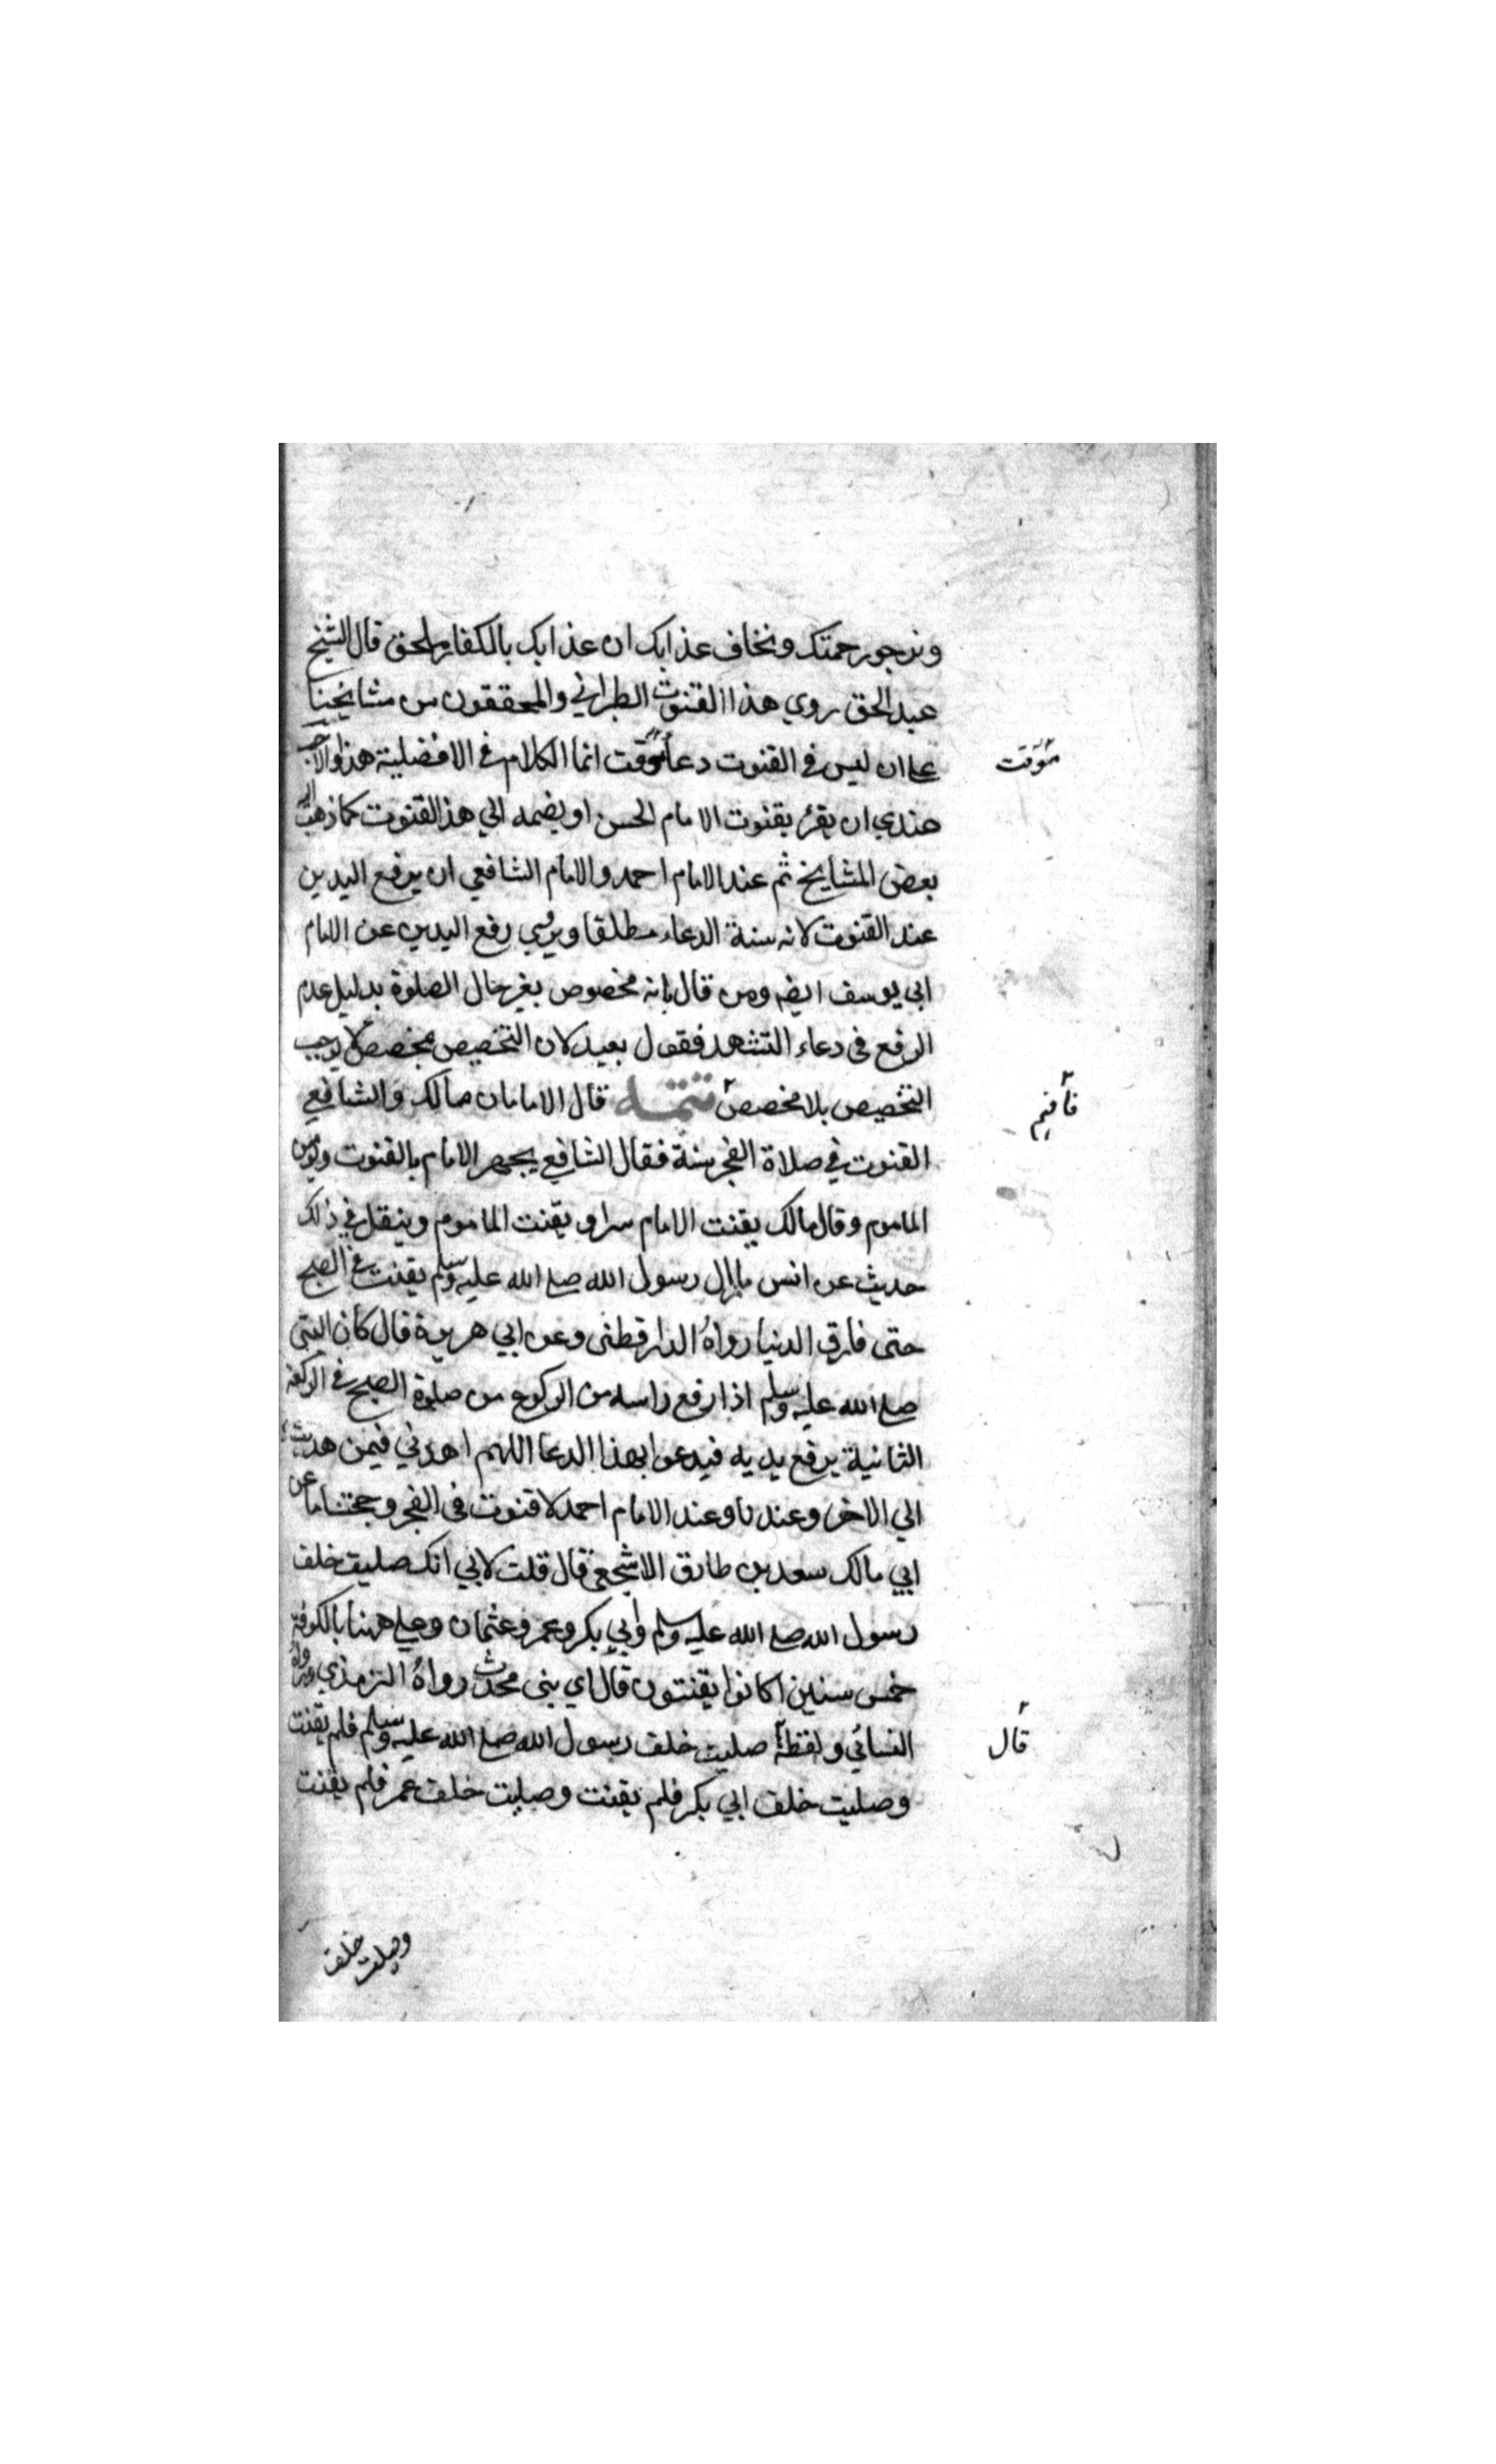 ونرجو رحمتك ونخاف عذابك ان عذابك بالكفار ملحق قال الشيخ
عبد الحق روي هذا القنوت الطبراني والمحققون من مشايخنا
على ان ليس في القنوت دعاء موقت انما الكلام في الافضلية هذا والاحب
مؤقت
عندي ان يقرء بقنوت الامام الحسن او يضمه الي هذ القنوت كما ذهب اليه
بعض المشايخ ثم عند الامام احمد والامام الشافعي ان يرفع اليدين
عند القنوت لانه سنة الدعاء مطلقا وروي رفع اليدين عن الامام
ابي يوسف ايضه ومن قال بانه مخصوص بغير حال الصلوة بدليل عدم
الرفع في دعاء التشهد فقول بعيد لان التخصيص بمخصص لا يوجب
التخصيص بلا مخصص تتمه قال الامامان مالك والشافعي
فافهم
القنوت في صلاة الفجر سنة فقال الشافعي يجهر الامام بالقنوت ويؤمن
الماموم وقال مالك يقنت الامام سرا و يقنت الماموم وينقل في ذلك
حديث عن انس مازال رسول الله صلى الله عليه وسلم يقنت في الصبح
حتى فارق الدنيا رواه الدارقطنى وعن ابي هريرة قال كان النبي
صلى الله عليه وسلم اذا رفع راسه من الركوع من صلوة الصبح في الركعة
الثانية يرفع يديه فيدعوا بهذا الدعا اللهم اهدني فيمن هديت
الي الاخر وعندنا وعند الامام احمد لا قنوت في الفجر وحجتنا ما عن
ابي مالك سعد بن طارق الاشجعي قال قلت لابي انك صليت خلف
رسول الله صلى الله عليه وسلم وابي بكر وعمر وعثمان وعلي ههنا بالكوفة
خمس سنين اكانوا يقنتون قال اي بني محدث رواه الترمذي ورواه
النسائي ولفظه صليت خلف رسول الله صلى الله عليه وسلم فلم يقنت
قال
وصليت خلف ابي بكر فلم يقنت وصليت خلف عمر فلم يقنت
وصليت خلف